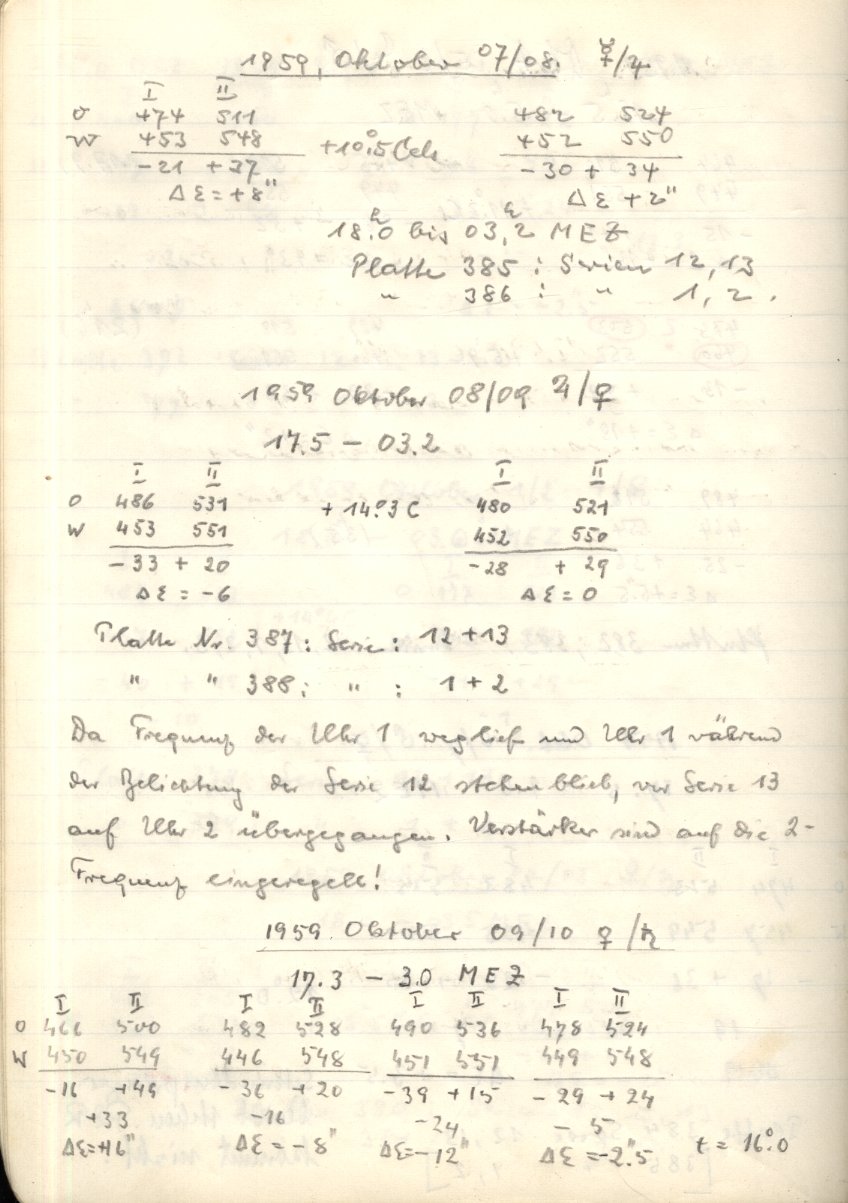 1959, Oktober 07/08. ☿/♃
I II
O 474 511 482 524
W 453 548 +10°.5 Cels 452 550
-21 +37 -30 + 34
Δε = +8" Δε +2"
18.ʰ0 bis 03.ʰ2 MEZ
Platte 385 : Serien 12, 13
" 386 : " 1, 2.
1959 Oktober 08/09 ♃/♀
17.5 – 03.2
I II I II
O 486 531 + 14°.3 C 480 521
W 453 551 452 550
-33 + 20 -28 + 29
Δε = -6 Δε = 0
Platte Nr. 387 : Serie : 12 + 13
" " 388 : " : 1 + 2
Da Frequenz der Uhr 1 weglief und Uhr 1 während
der Belichtung der Serie 12 stehen blieb, vor Serie 13
auf Uhr 2 übergegangen. Verstärker sind auf die 2-
Frequenz eingeregelt!
1959 Oktober 09/10 ♀/♄
17.3 – 3.0 MEZ
I II I II I II I II
O 466 500 482 528 490 536 478 524
W 450 549 446 548 451 551 449 548
-16 +49 -36 +20 -39 +15 -29 + 24
+33 -16 -24 - 5
Δε=+16" Δε = -8" Δε=-12" Δε = -2".5 t = 16°.0